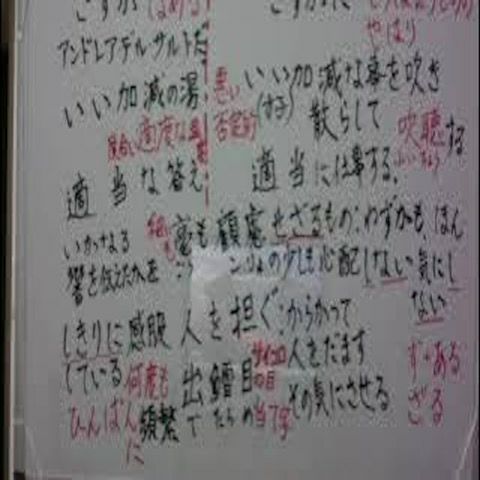 さすが
アンドレアデルサルトだ
いい加減の湯
悪い
否定的
いい加減な事を吹き
(する)
散らして
吹聴する
ふいちょう
度合い 適度な
適当な答え
適当に仕事する。
毫も顧慮せざるもの：わずかも、ほん
いかなる
響を伝えたかを
の少しも心配しない気にし
ない
しきりに感服
人を担ぐ：からかって
ている
何度も
人をだます
サイコロ
の目
ず+ある
ざる
出鱈目
でたらめ
当て字
その気にさせる
ひんぱんに
頻繁
やはり